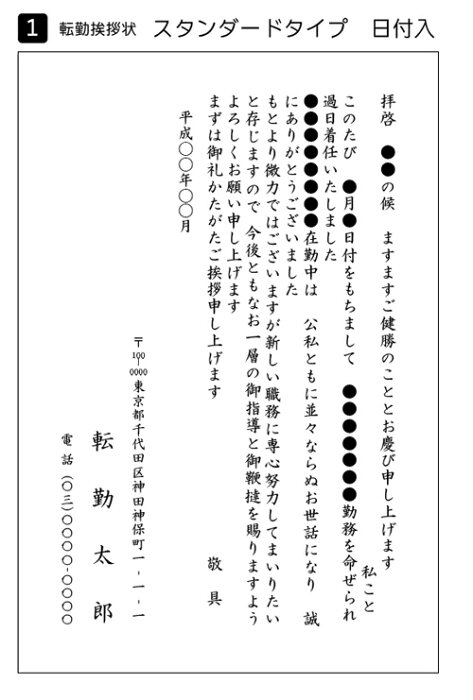 1 転勤挨拶状 スタンダードタイプ 日付入
拝啓 ●●の候 ますますご健勝のこととお慶び申し上げます
私こと
このたび ●月●日付をもちまして ●●●●●●●勤務を命ぜられ
過日着任いたしました
●●●●●●●在勤中は 公私ともに並々ならぬお世話になり 誠
にありがとうございました
もとより微力ではございますが新しい職務に専心努力してまいりたい
と存じますので 今後ともなお一層の御指導と御鞭撻を賜りますよう
よろしくお願い申し上げます
まずは御礼かたがたご挨拶申し上げます
敬具
平成〇〇年〇〇月
〒100-0000 東京都千代田区神田神保町一-一-一
転勤太郎
電話(〇三)〇〇〇〇-〇〇〇〇